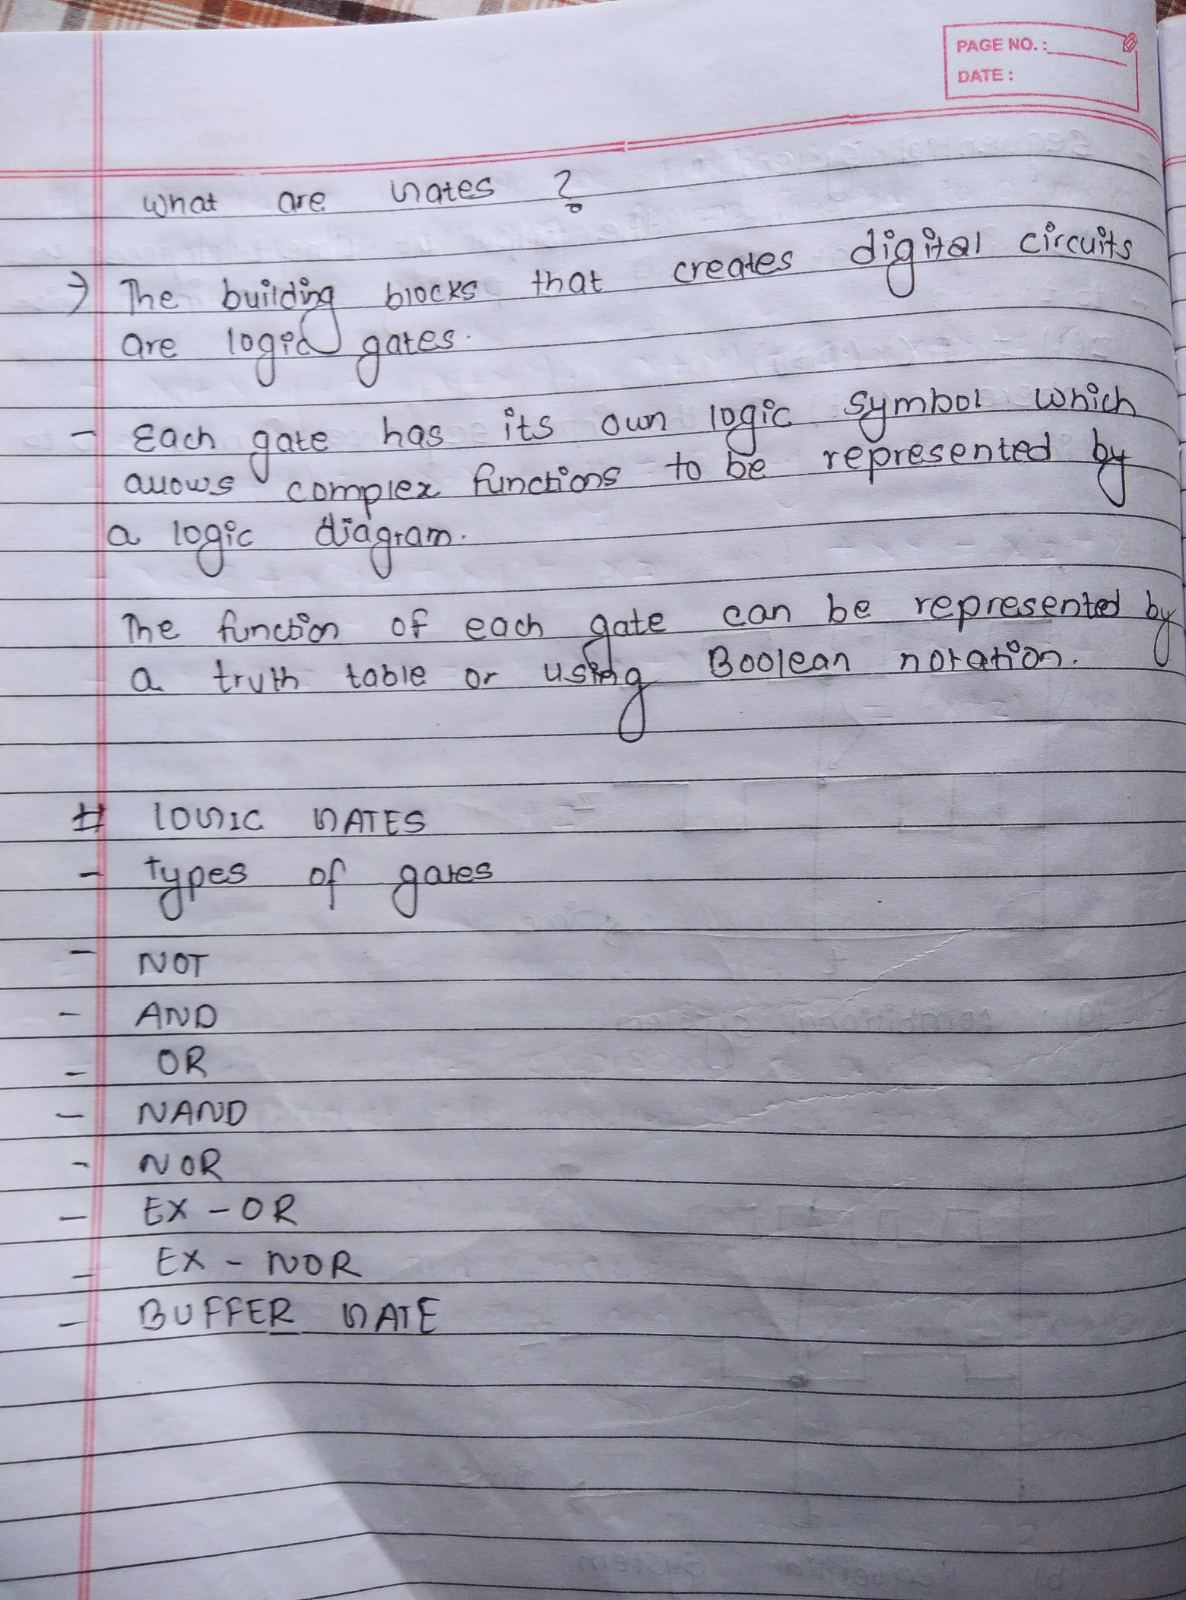 PAGE NO. :
DATE :
What are Gates ?
→ The building blocks that creates digital circuits
are logic gates.
- Each gate has its own logic symbol which
allows complex functions to be represented by
a logic diagram.
The function of each gate can be represented by
a truth table or using Boolean notation.
# LOGIC GATES
- types of gates
- NOT
- AND
- OR
- NAND
- NOR
- EX - OR
- EX - NOR
- BUFFER GATE